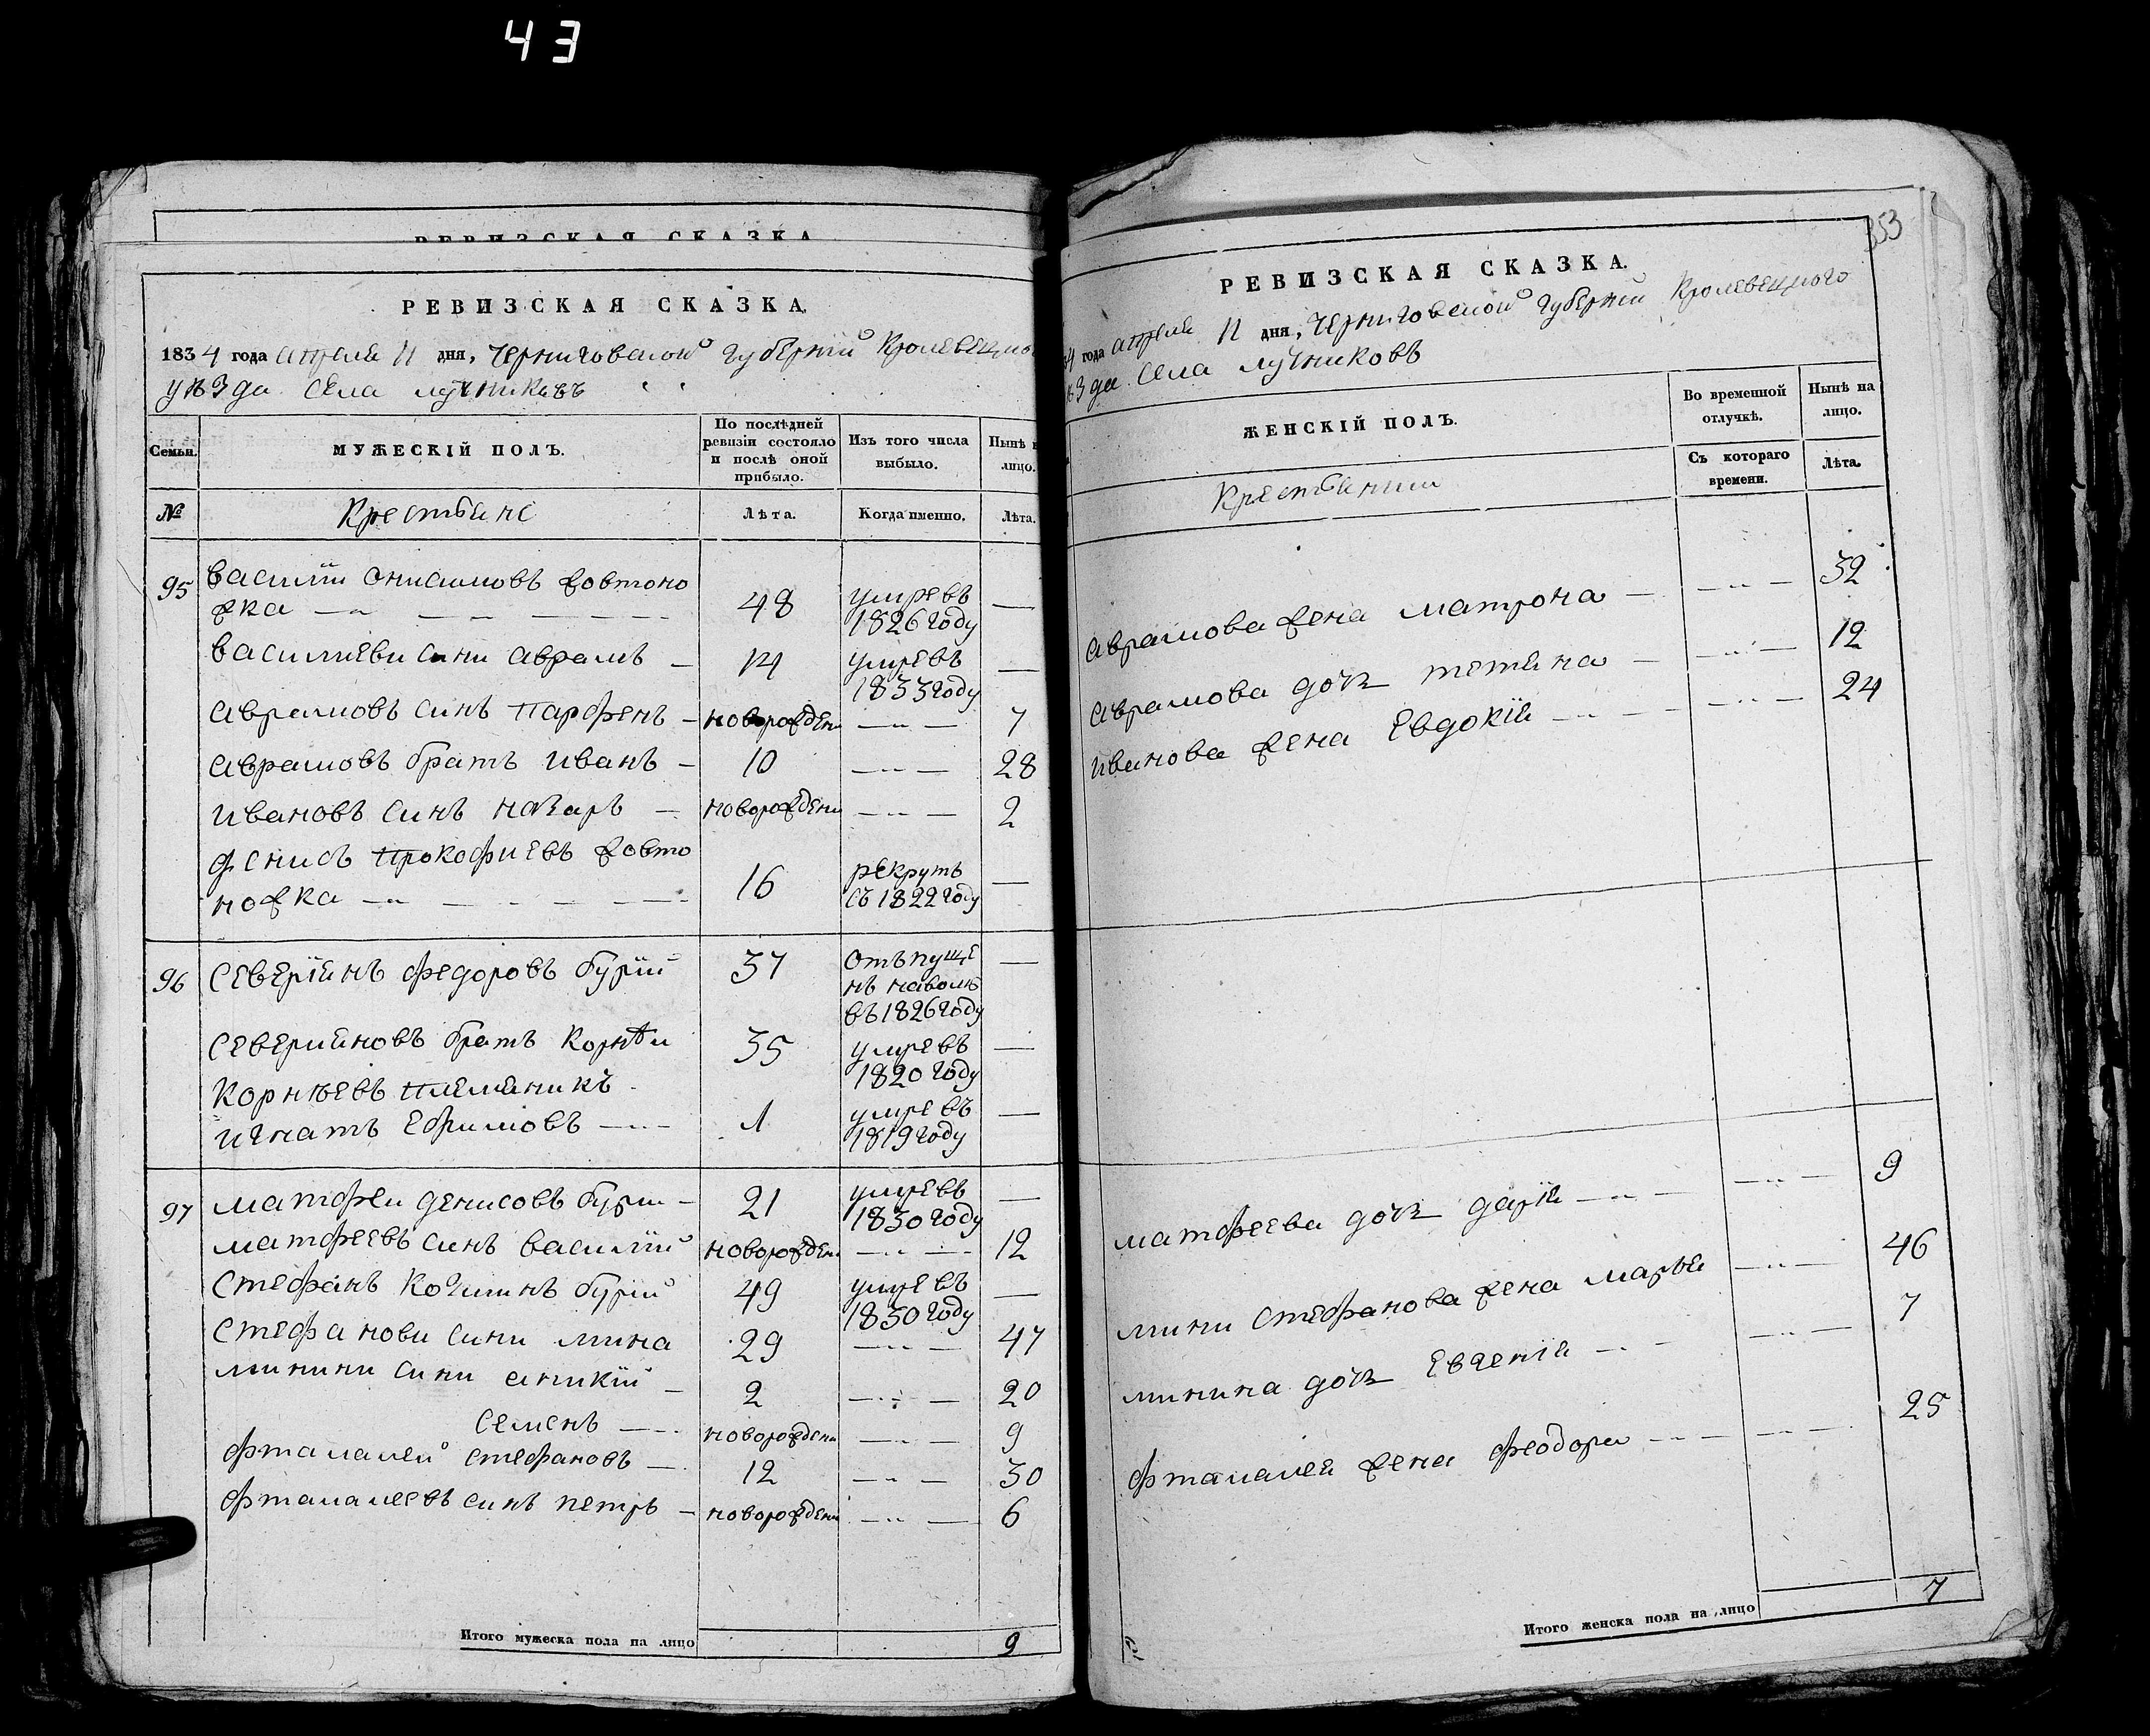 43
РЕВИЗСКАЯ СКАЗКА
РЕВИЗСКАЯ СКАЗКА.
1834 года апреля 11 дня, Черниговской губернии Кролевецко
уѣзда села лучниковъ
Семьи.
МУЖЕСКІЙ ПОЛЪ.
По послѣдней ревизіи состояло и послѣ оной прибыло.
Изъ того числа выбыло.
Нынѣ н лицо.
№
Крестьяне
Лѣта.
Когда именно.
Лѣта.
95 Василій Онисимовъ Жовтоно
жка — 48 умревъ 1826 году —
Василиеви сини Аврамъ — 14 умревъ 1833 году —
Аврамовъ синъ Парфенъ — новорожден — 7
Аврамовъ братъ Иванъ — 10 — 28
Ивановъ синъ Назаръ — новорождени — 2
Фенисъ Прокофиевъ Жовто
ножка — 16 рекрутъ съ 1822 году —
96 Северіянъ Федоровъ Бурій 37 Отъпуще нъ наволю въ 1826 году —
Северияновъ братъ Корнѣи 35 умревъ 1820 году —
Корнѣевъ племяникъ
Игнатъ Ефимовъ — 1 умревъ 1819 году —
97 Матфеи Денисовъ Бури — 21 умревъ 1830 году —
Матфеевъ синъ Василій новорожден — 12
Стефанъ Кочининъ Бурій 49 умревъ 1830 году —
Стефанови сини Мина 29 — 47
Минини сини Аникій — 2 — 20
Семенъ — новорождени — 9
Фталалей Стефановъ — 12 — 30
Фталалеевъ синъ Петръ — новорождени — 6
Итого мужеска пола на лицо 9
353
РЕВИЗСКАЯ СКАЗКА.
4 года апреля 11 дня, Черниговской губерніи Кролевецкого
ѣзда села лучниковъ
ЖЕНСКІЙ ПОЛЪ.
Во временной отлучкѣ.
Нынѣ на лицо.
Съ котораго времени.
Лѣта.
Крестьянки
Аврамова жена Матрона — 32
Аврамова дочь Тетяна — 12
Иванова жена Евдокія — 24
Матфеева дочь Дарія — 9
Мини Стефанова жена Марья — 46
Минина дочь Евгенія — 7
Фталалея жена Феодора — 25
Итого женска пола на лицо 7